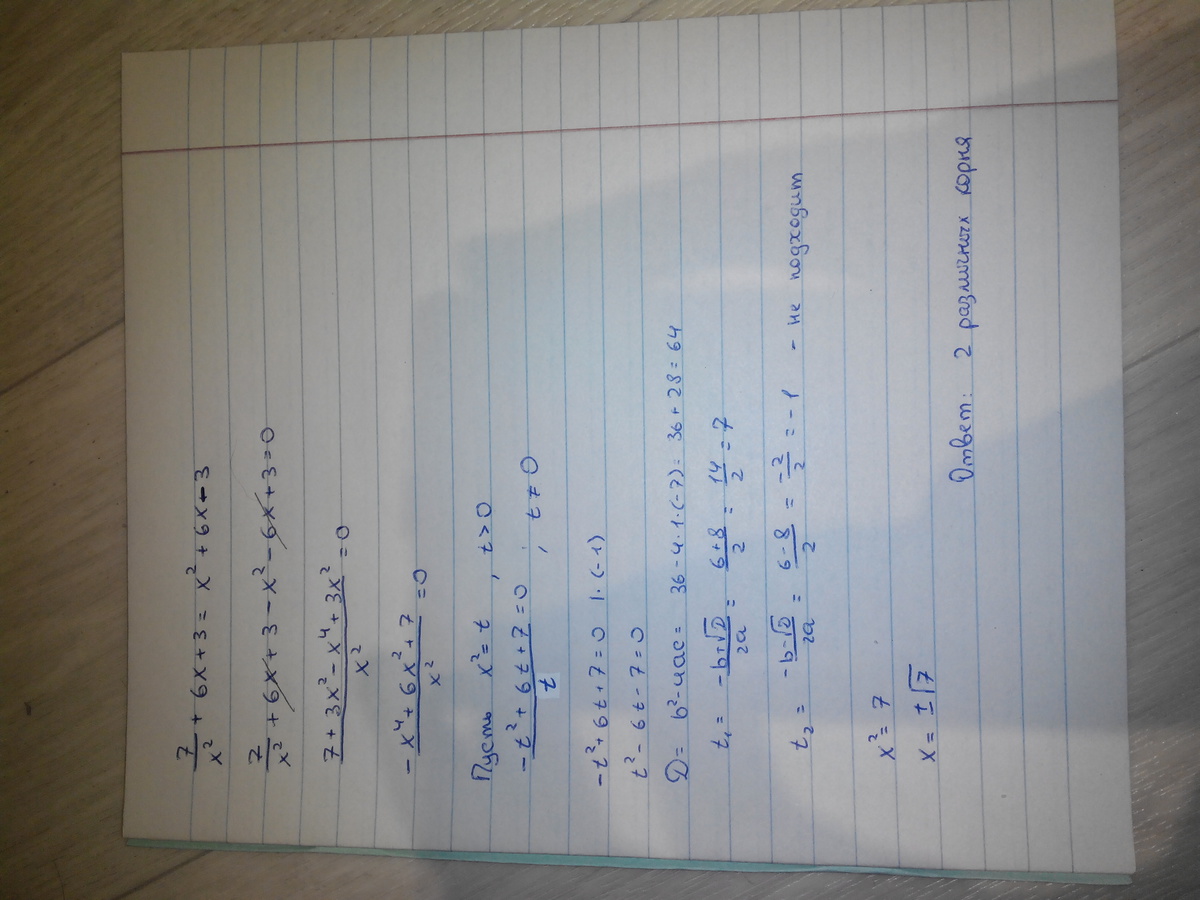 7/x² + 6x + 3 = x² + 6x - 3
7/x² + 6x + 3 - x² - 6x + 3 = 0
(7 + 3x² - x⁴ + 3x²)/x² = 0
(-x⁴ + 6x² + 7)/x² = 0
Пусть x² = t, t > 0
(-t² + 6t + 7)/t = 0; t ≠ 0
-t² + 6t + 7 = 0 | · (-1)
t² - 6t - 7 = 0
D = b² - 4ac = 36 - 4 · 1 · (-7) = 36 + 28 = 64
t₁ = (-b + √D)/2a = (6 + 8)/2 = 14/2 = 7
t₂ = (-b - √D)/2a = (6 - 8)/2 = -2/2 = -1 - не подходит
x² = 7
x = ±√7
Ответ: 2 различных корня